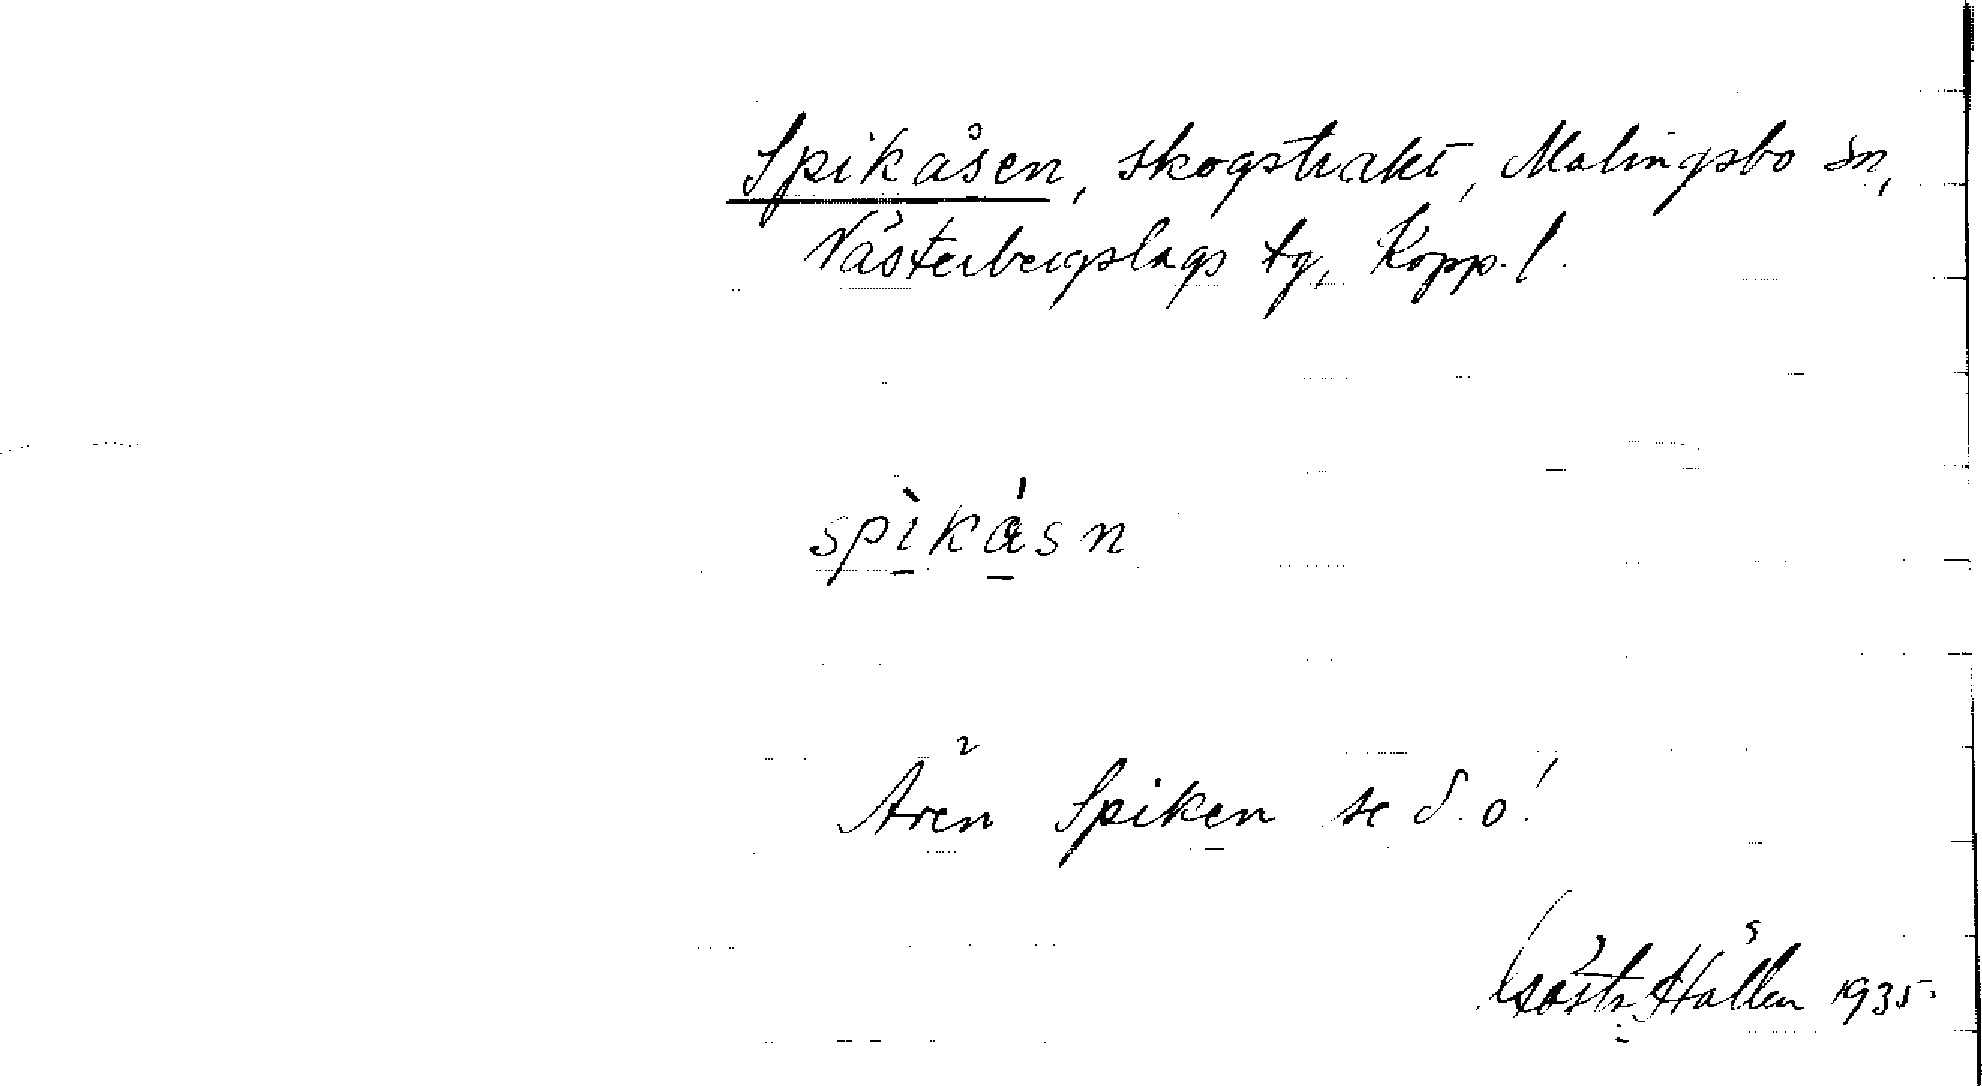 Spikåsen, skogstrakt, Malingsbo sn,
Västerbergslags tg, Kopp. l.
spìkásn
Åren Spiken se d. o!
Gösta Hållen 1935.